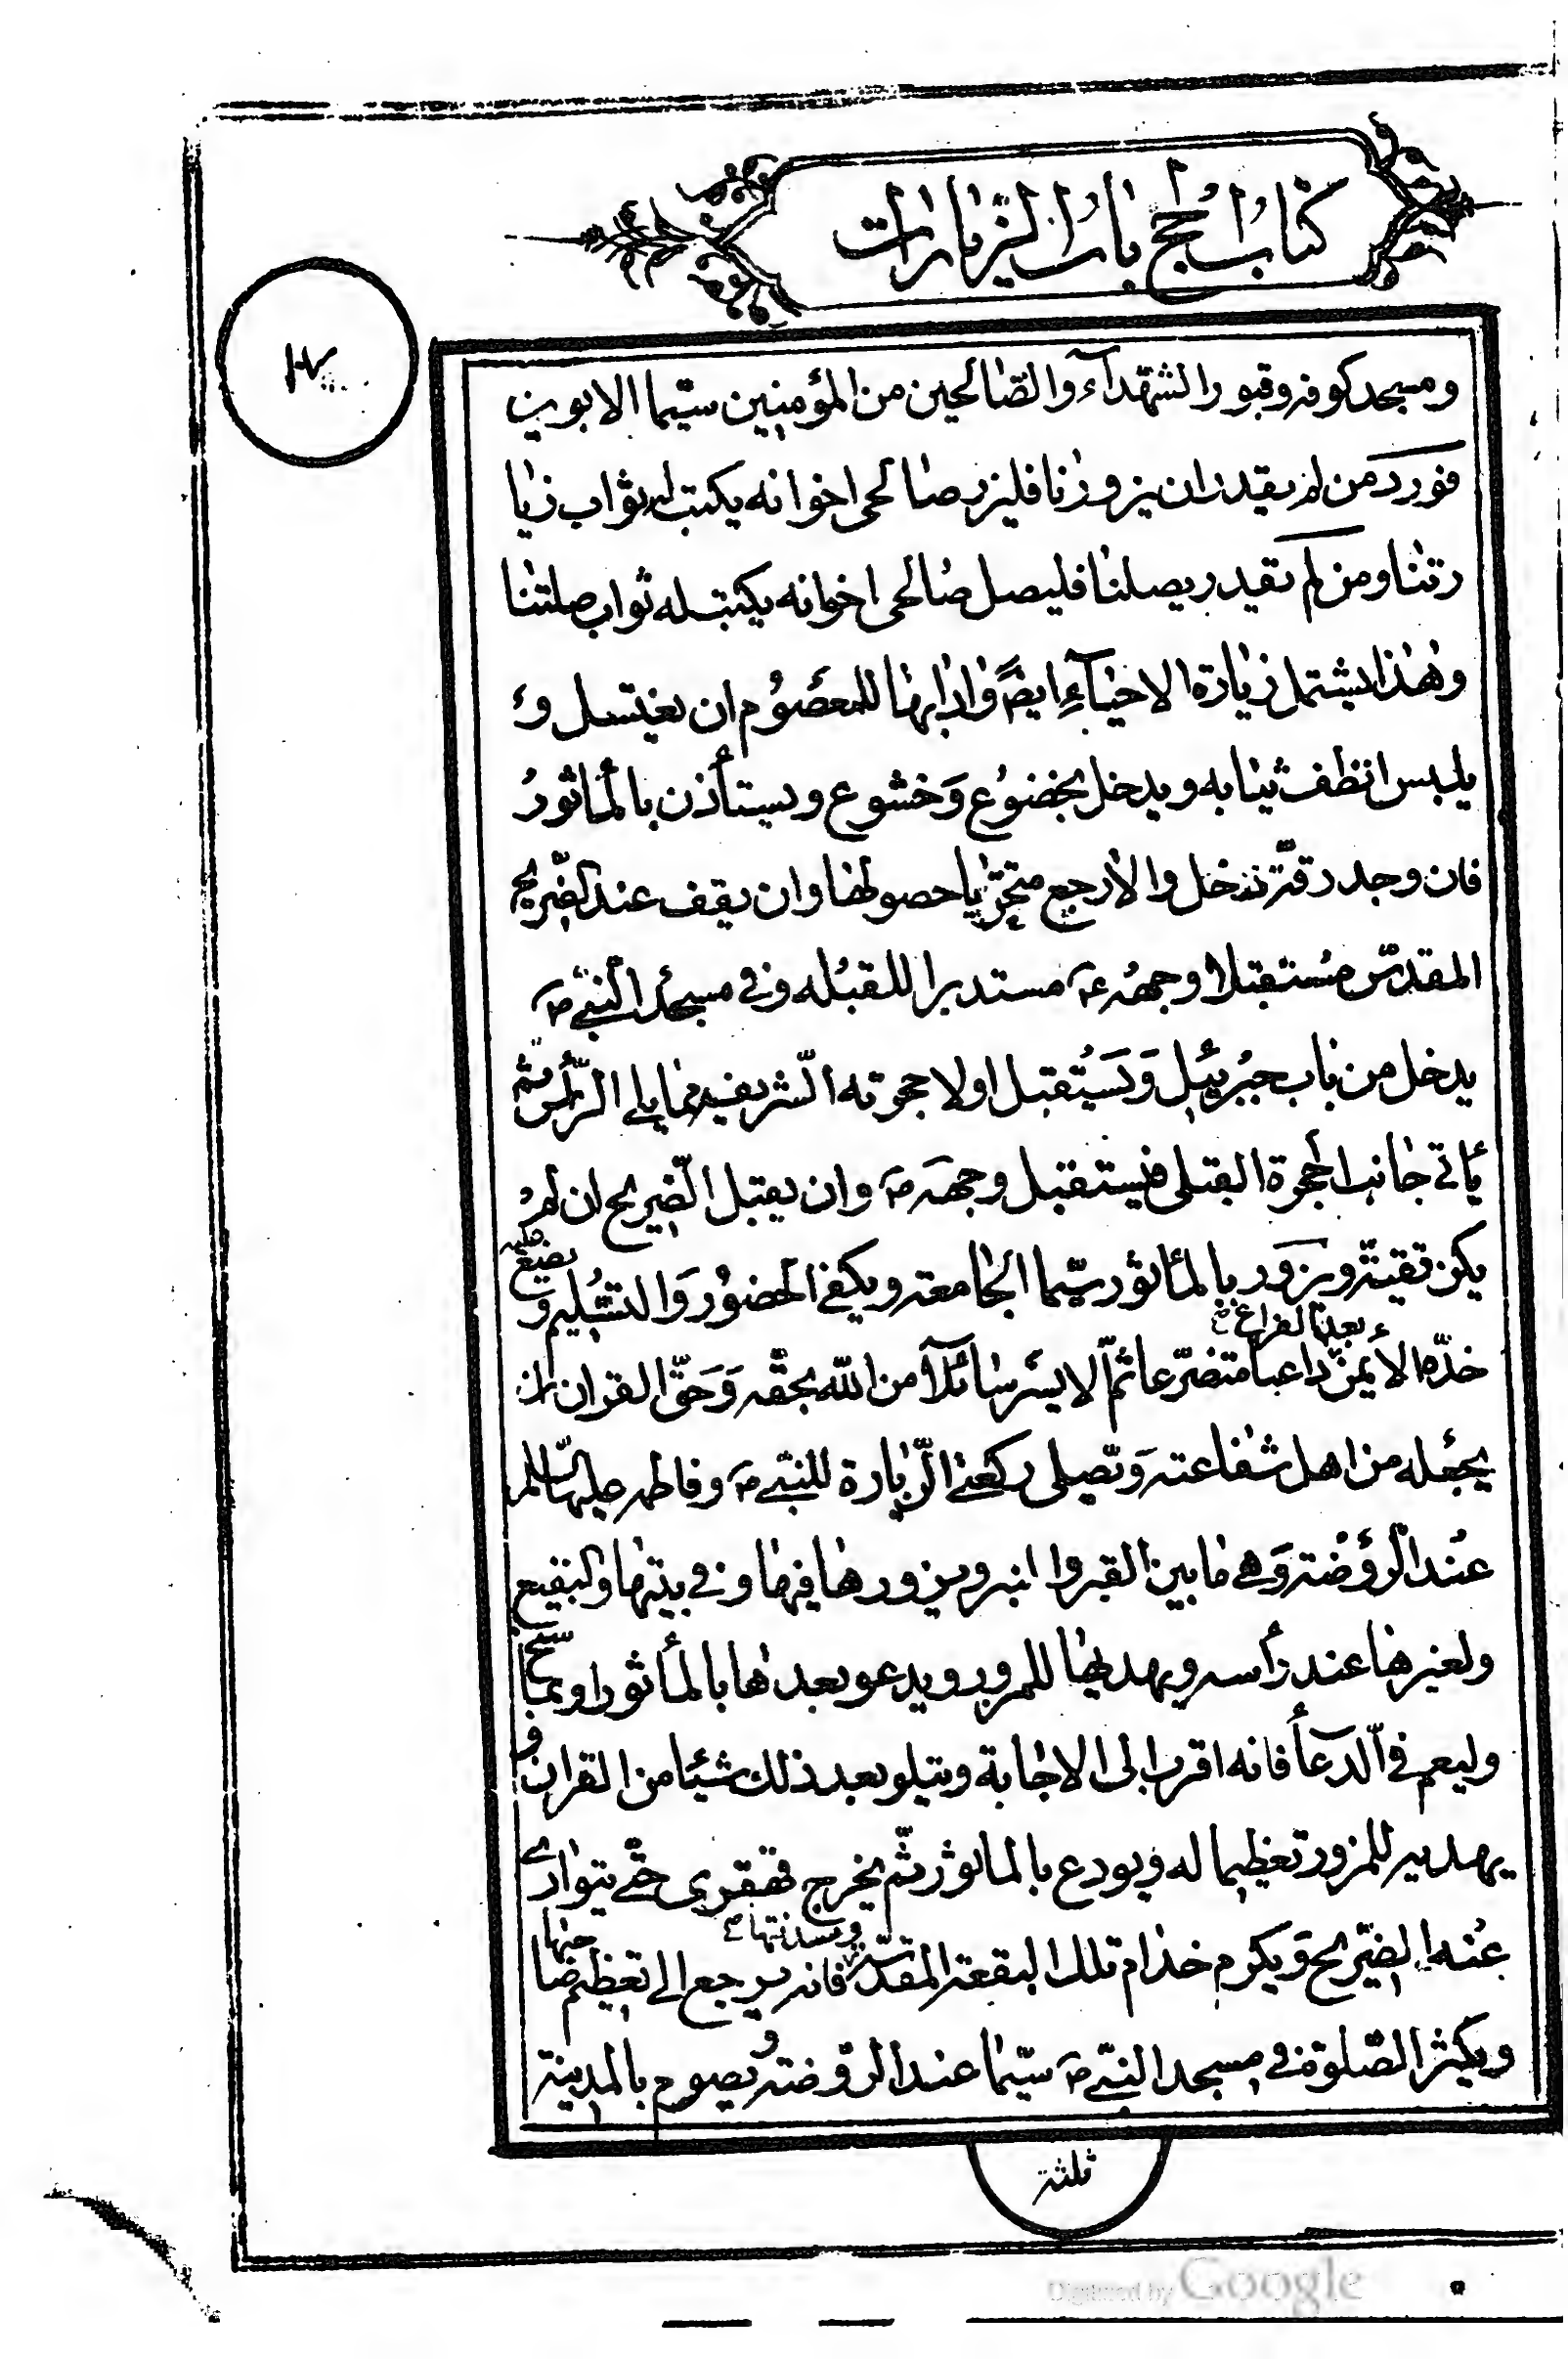 كتاب الحج باب الزيارات
ومسجد كوفه وقبور الشهدآء والصالحين من المؤمنين سيّما الابوين
فورد من لم يقدر ان يزورنا فليزر صالحى اخوانه يكتب له ثواب زيا
رتنا ومن لم يقدر يصلنا فليصل صالحى اخوانه يكتب له ثواب صلتنا
وهذا يشتمل زيارة الاحيآء ايضً وادابها للمعصوم ان يغتسل و
يلبس انظف ثيابه ويدخل بخضوع وَخشوع ويستأذن بالمأثور
فان وجد رقّة فدخل والا رجع متحرّيا حصولها وان يقف عند الضّريح
المقدس مستقبلا وجهه ع مستدبرا للقبله وفي مسجد النّبي ص
يدخل من باب جبرئيل وَيَستقبل اولا حجرته الشّريفه مما يلي الرّأس ثم
يأتي جانب الحجرة القبلى فيستقبل وجهَه ص وان يقبل الضّريح ان لم
يكن تقيّة ويزَور بالمأثور سيّما الجامعه ويكفي الحضور وَالتسليم و يضع
بعد الفراغ
خدّه الأيمن داعيا متضرّعا ثمّ الايسر سائلاً من اللّه بحقّه وَحَقّ القران ان
يجعله من اهل شفاعته وَيصلى ركعتي الزّيارة للنبيّ ص وفاطمه عليها السلام
عند الرّوضة وَهى ما بين القبر وا لنبر ويزورها فيها وفي بيتها والبقيع
ولغيرها عند رأسه ويهديها للمزور ويدعو بعدها بالمأثور او بما سنح
وليعم في الدّعآ فانه اقرب الى الاجابة ويتلو بعد ذلك شيئا من القران و
يهديه للمزور تعظيما له ويودع بالماثور ثمّ يخرج قهقرى حتّى يتوارى
وسدنتها
عنه الضّريح وَيكرم خدام تلك البقعة المقدّسة فانه يرجع الى تعظيم صاحبها
ويكثر الصّلوة في مسجد النبيّ ص سيّما عند الروضة ويصوم بالمدينة
ثلثة
Digitized by Google